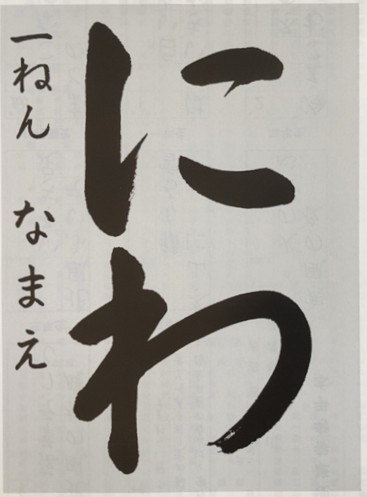 にわ
一ねん なまえ